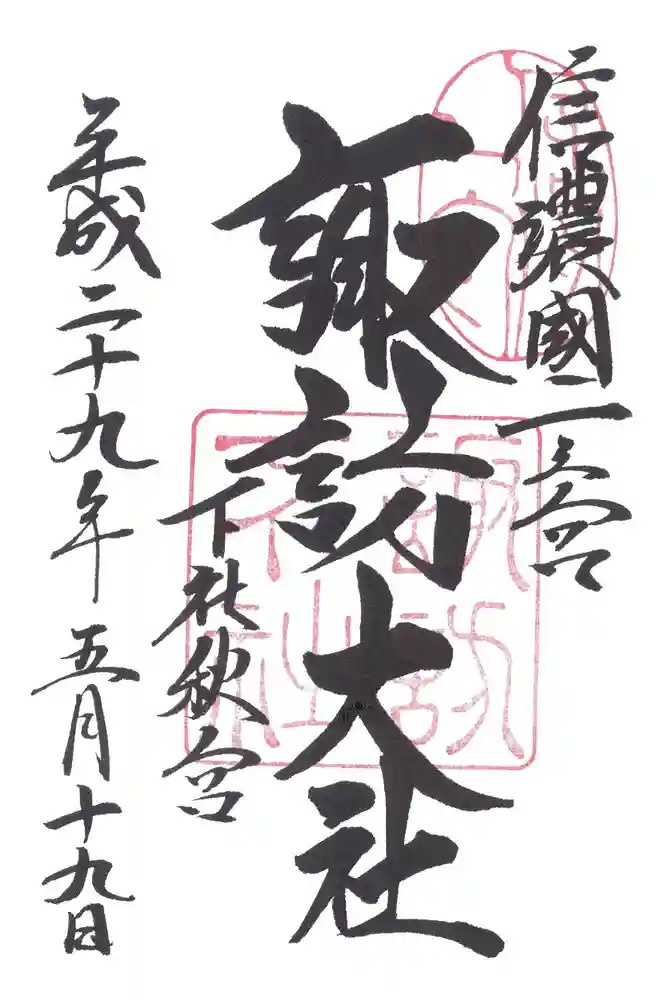 信濃國一之宮
諏訪大社
下社秋宮
平成二十九年五月十九日